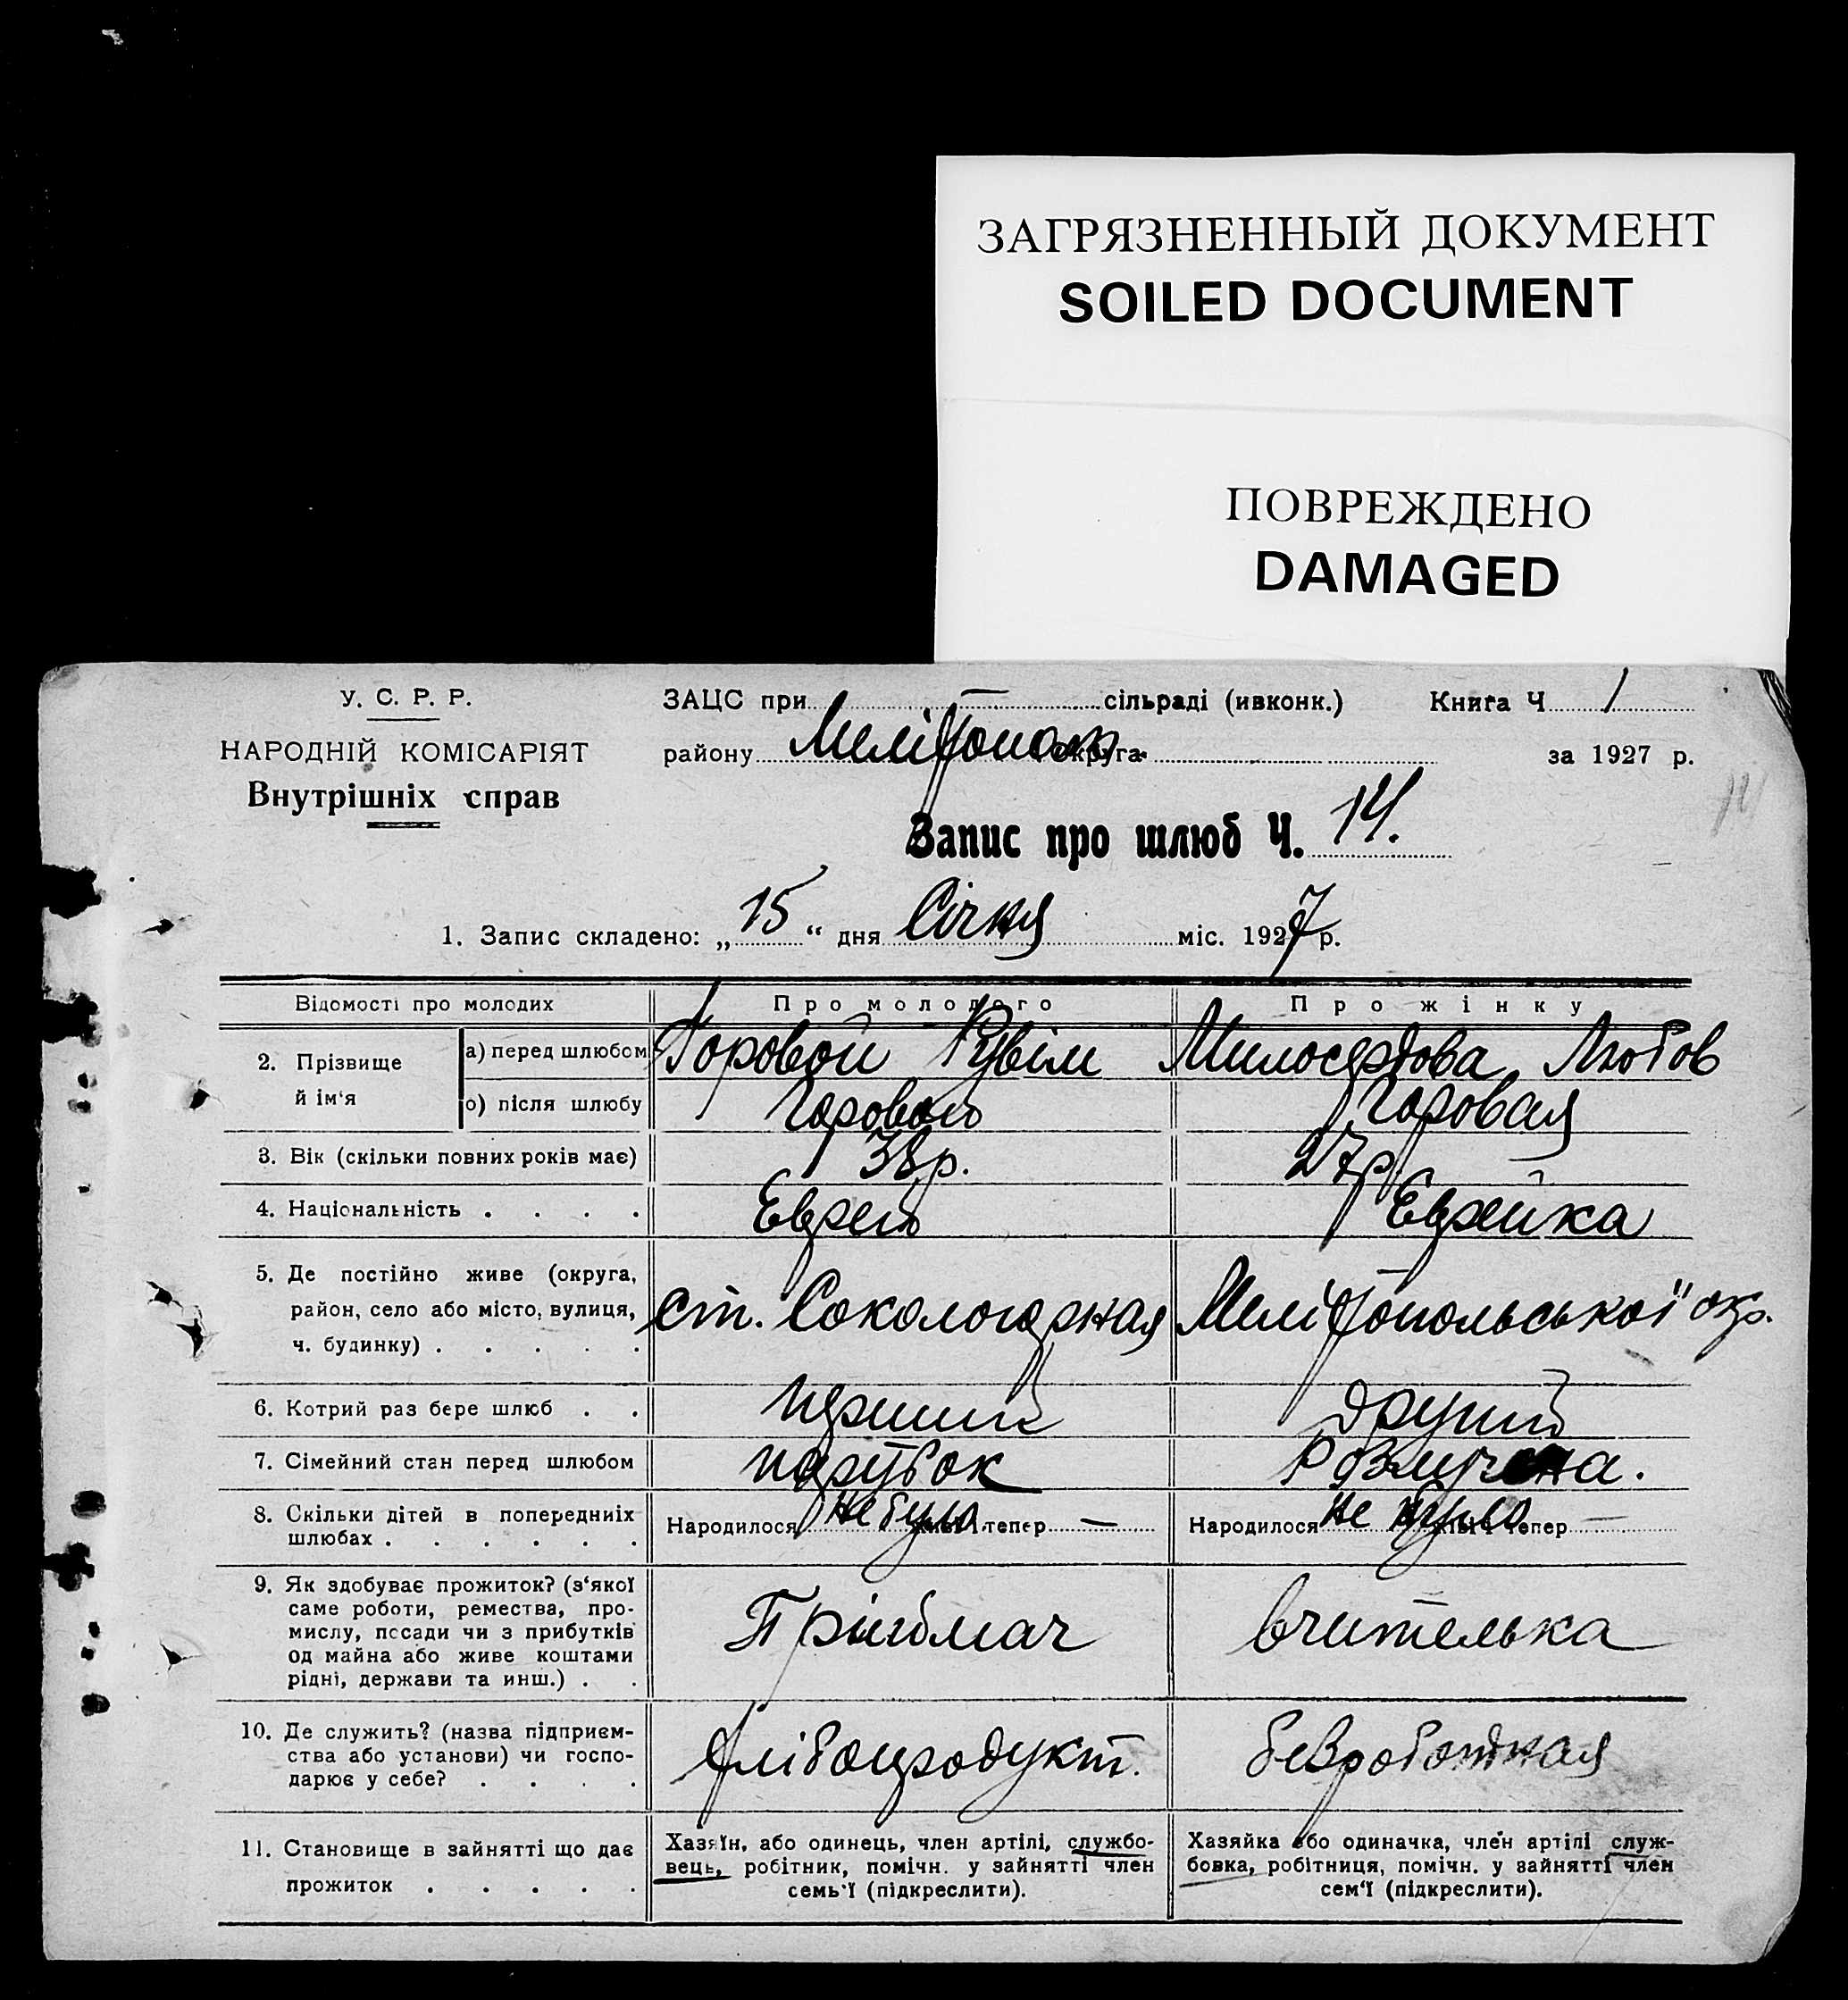 ЗАГРЯЗНЕННЫЙ ДОКУМЕНТ
SOILED DOCUMENT
ПОВРЕЖДЕНО
DAMAGED
У. С. Р. Р.
НАРОДНІЙ КОМІСАРІЯТ
Внутрішніх справ
ЗАЦС при — сільраді (ивконк.) Книга Ч 1
району Меліτополь округа за 1927 р.
Запис про шлюб Ч. 14.
14
1. Запис складено: „ 15 “ дня Січня міс. 1927 р.
Відомості про молодих Про молодого Про жінку
2. Прізвище й ім‘я
а) перед шлюбом Горовой Рувім Милосердова Любов
о) після шлюбу Горовой Горовая
3. Вік (скільки повних років має) 38 р. 27 р.
4. Національність . . . . Еврей Еврейка
5. Де постійно живе (округа,
район, село або місто, вулиця,
ч. будинку) . . . . .
ст. Сокологорная Мелітопольської окр.
6. Котрий раз бере шлюб . . перший другий
7. Сімейний стан перед шлюбом парубок розлучена.
8. Скільки дітей в попередниіх
шлюбах . . . . . .
Народилося не було тепер — Народилося не було тепер —
9. Як здобуває прожиток? (з‘якої
саме роботи, ремества, про-
мислу, посади чи з прибутків
од майна або живе коштами
рідні, держави та инш.) . .
вчителька
10. Де служить? (назва підприєм-
ства або установи) чи госпо-
дарює у себе? . . . .
Хлібопродукт. безроботная
11. Становище в зайнятті що дає
прожиток . . . . .
Хазяїн, або одинець, член артілі, службо-
вець, робітник, помічн. у зайнятті член
семь‘ї (підкреслити).
Хазяйка або одиначка, член артілі служ-
бовка, робітниця, помічн. у зайнятті член
сем‘ї (підкреслити).